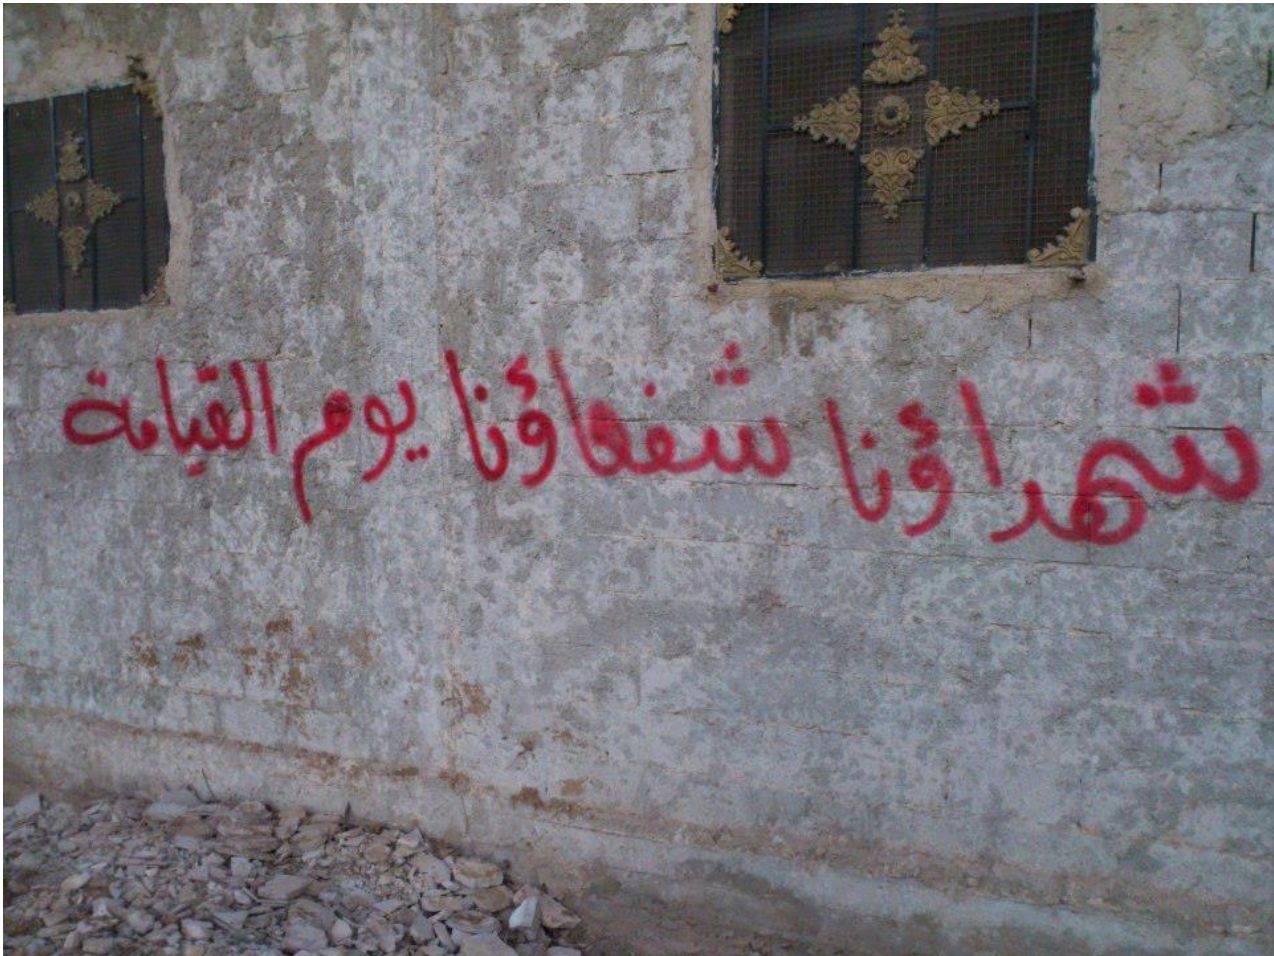 شهداؤنا شفعاؤنا يوم القيامة